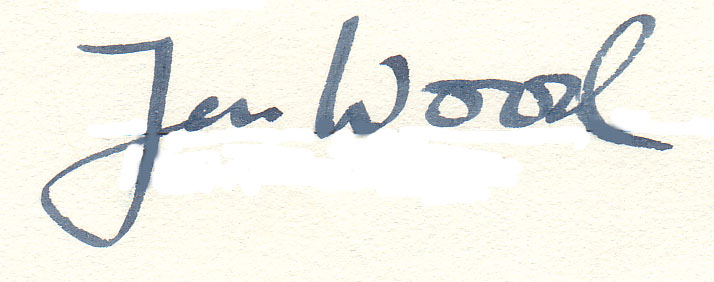 Jen Wood